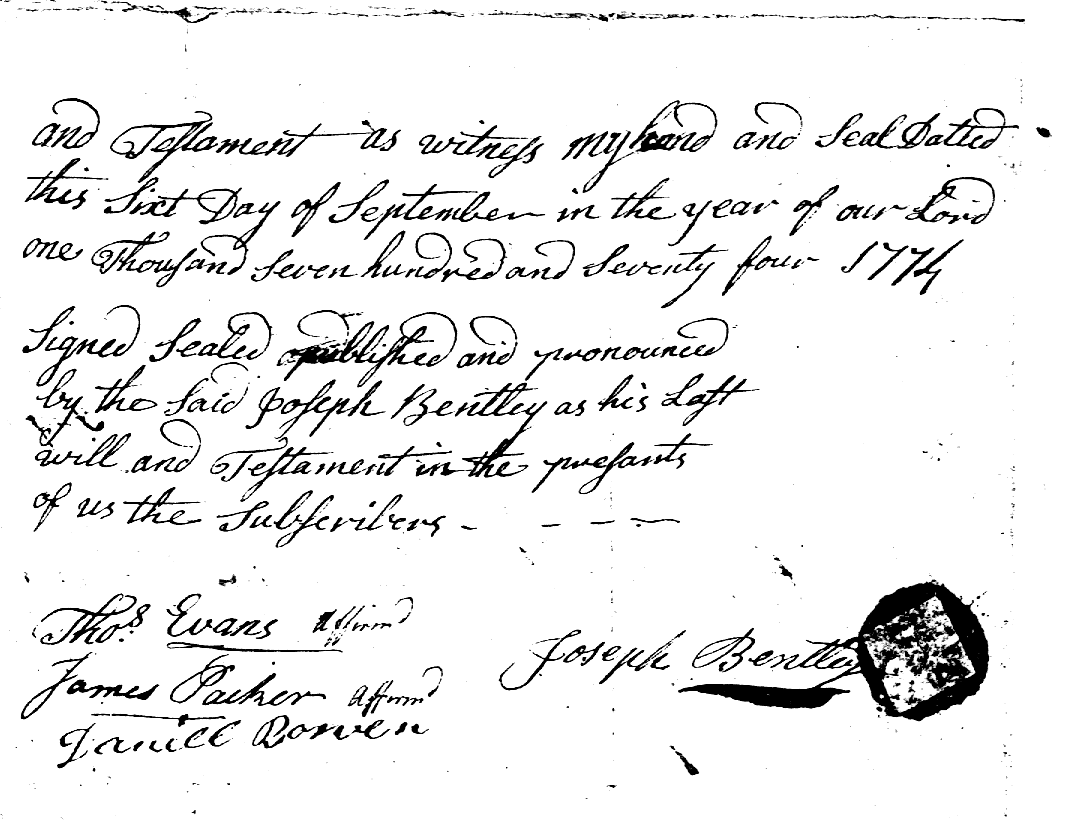 and Testament as witness my hand and Seal Datted
this Sixt Day of September in the year of our Lord
one Thousand Seven hundred and Seventy four 1774
Signed Sealed published and pronounced
by the Said Joseph Bentley as his Last
will and Testament in the presants
of us the Subscribers - - - -
Thos. Evans Affirmd
James Packer Affirmd
Daniel Bowen
Joseph Bentley